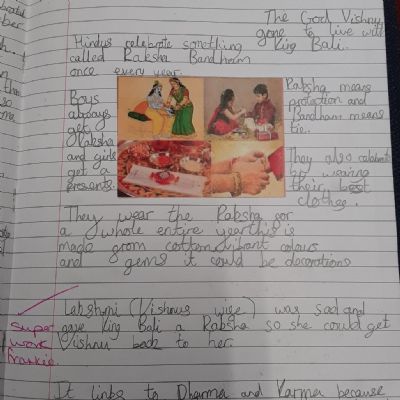 The God Vishnu
gone to live with
King Bali.
Hindus celebrate something
called Raksha Bandham
once every year.
Boys
always
get
Raksha
and girls
get a
presents.
Raksha means
protection and
Bandham means
tie.
They also celebrate
by wearing
their best
clothes.
They wear the Raksha for
a whole entire year this is
made from cotton, vibrant colours
and gems it could be decorations
Lakshmi (Vishnus wife) was sad and
gave King Bali a Raksha so she could get
Vishnu back to her.
super
work
Frankie.
It links to Dharma and Karma because